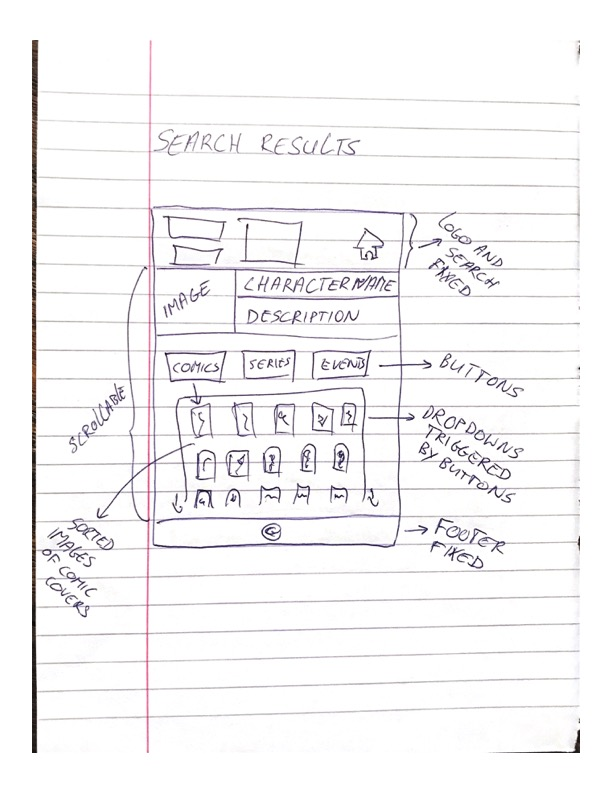 SEARCH RESULTS
LOGO AND
SEARCH
FIXED
IMAGE
CHARACTER NAME
DESCRIPTION
COMICS
SERIES
EVENTS
BUTTONS
SCROLLABLE
DROPDOWNS
TRIGGERED
BY BUTTONS
SORTED
IMAGES
OF COMIC
COVERS
©
FOOTER
FIXED